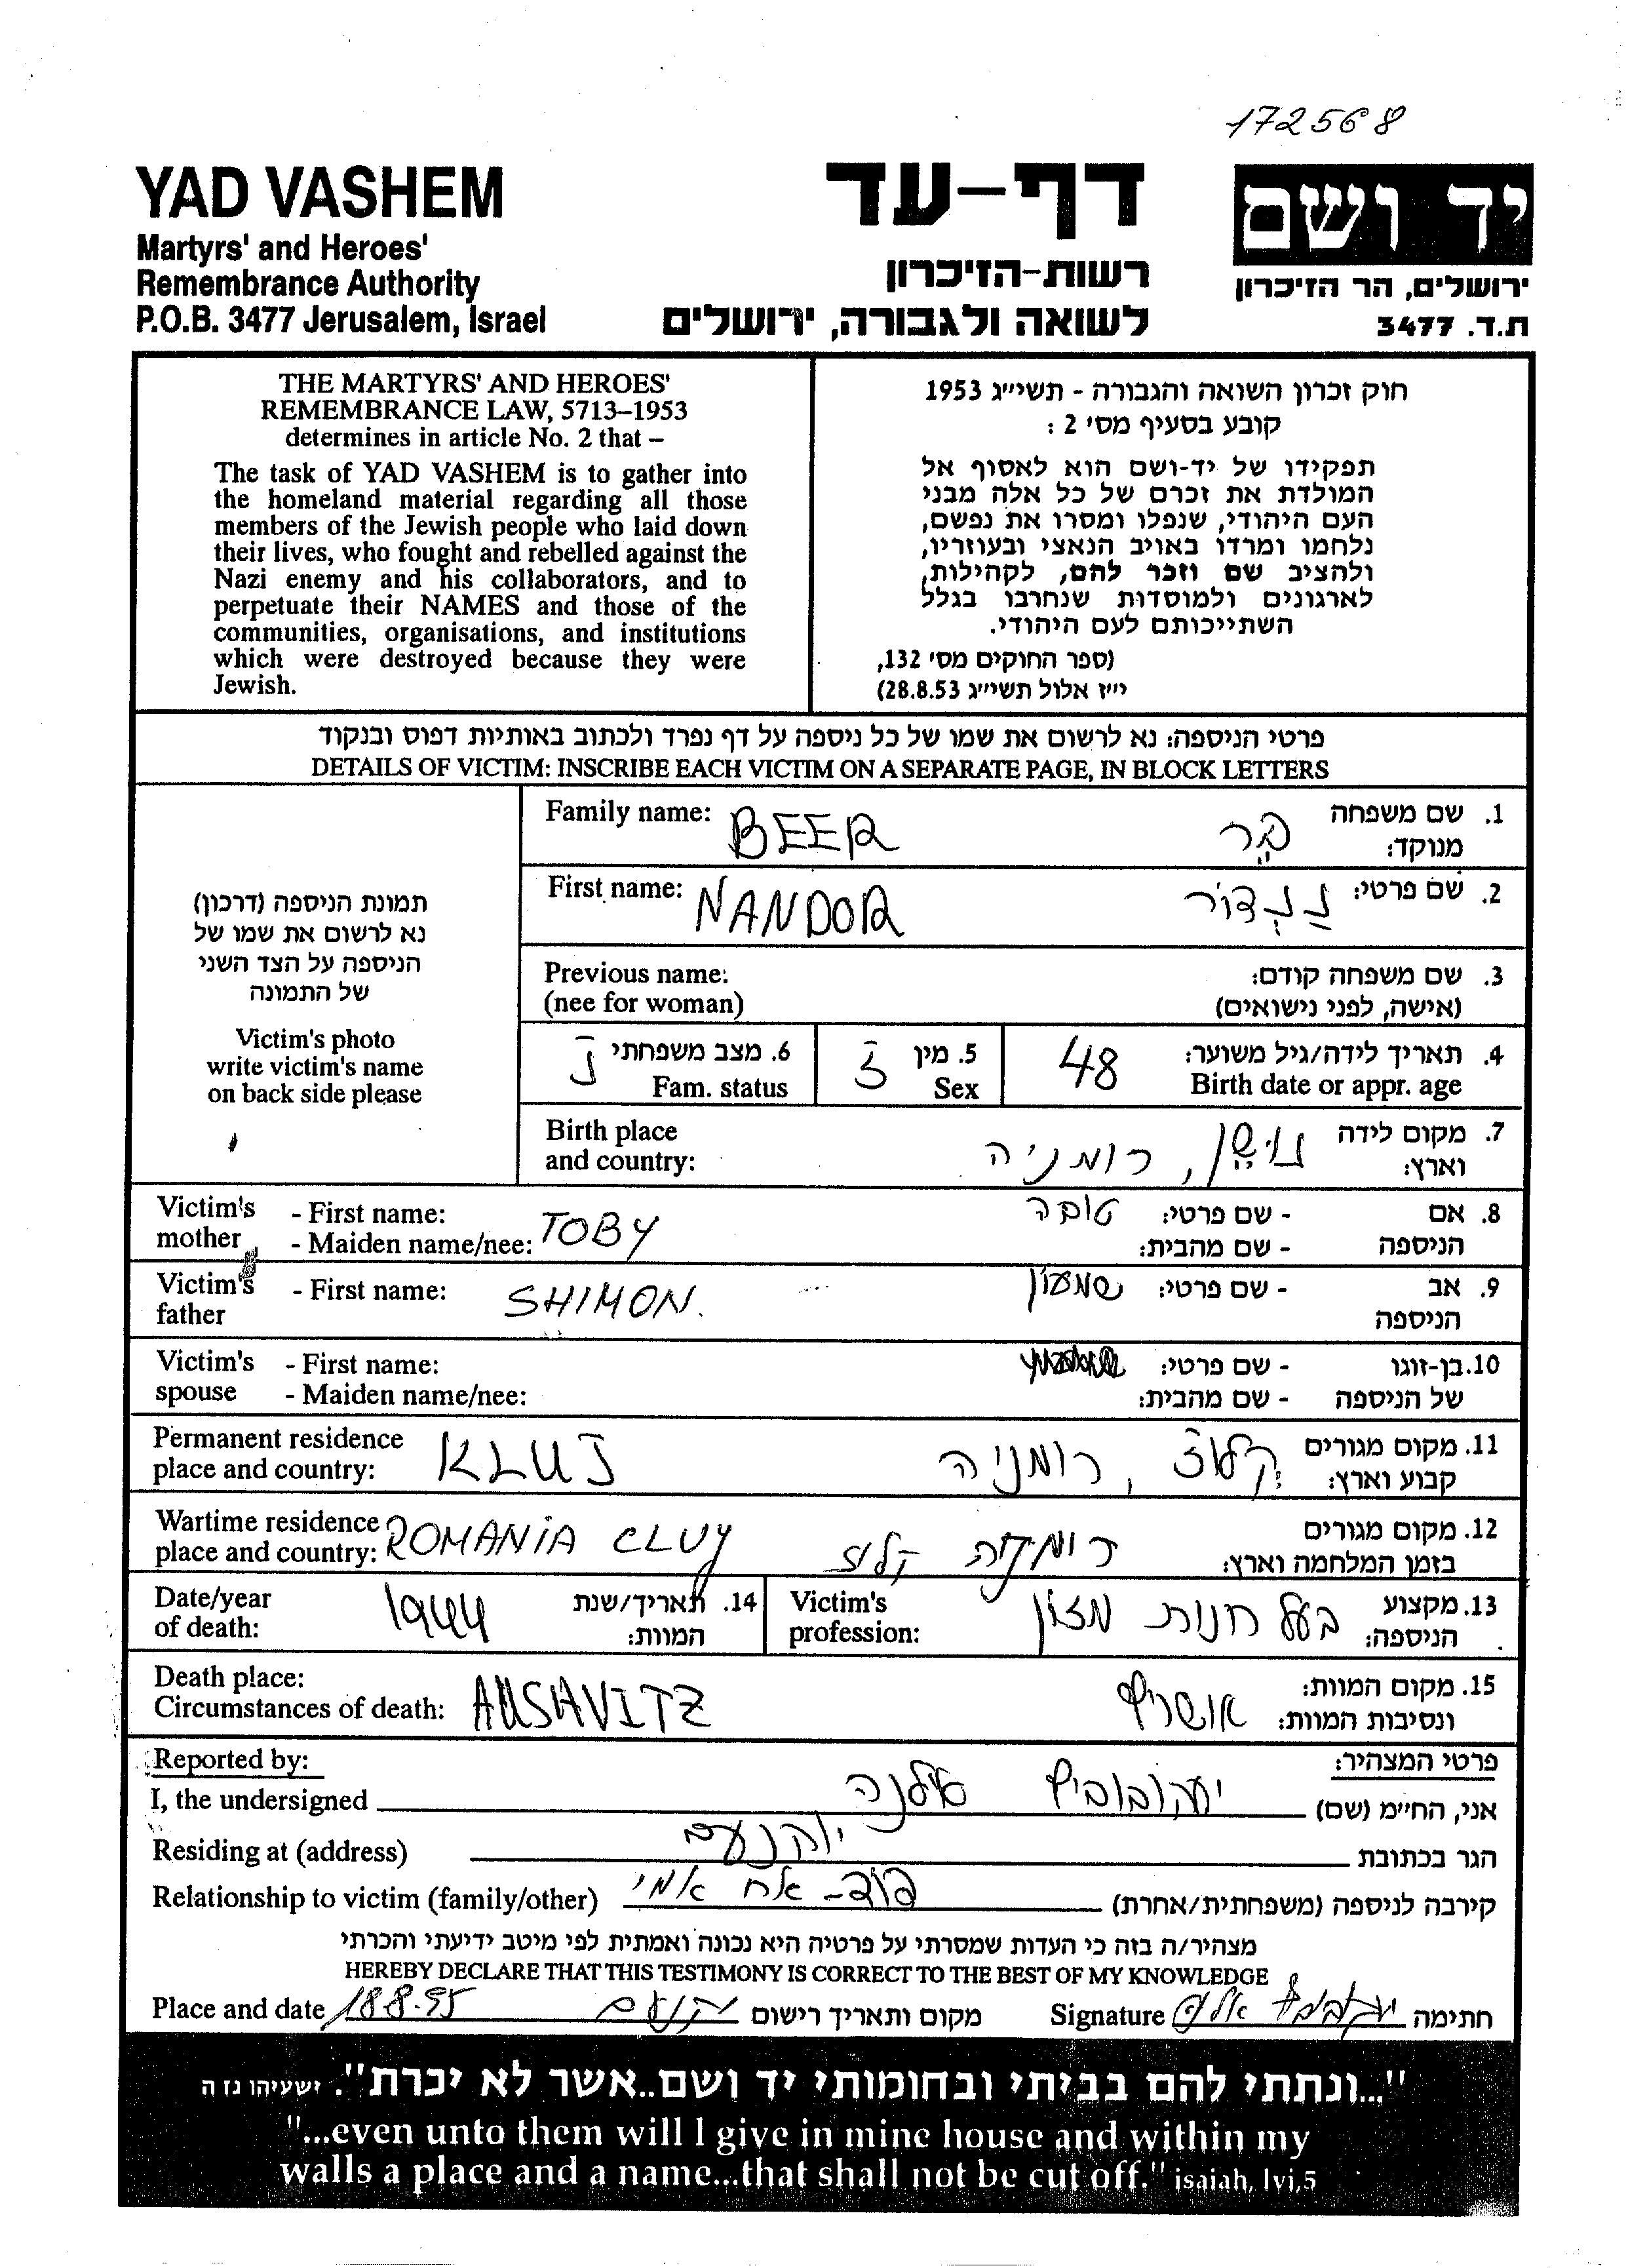 172568
YAD VASHEM
Martyrs' and Heroes'
Remembrance Authority
P.O.B. 3477 Jerusalem, Israel
דף-עד
רשות-הזיכרון
לשואה ולגבורה, ירושלים
יד ושם
ירושלים, הר הזיכרון
ת.ד. 3477
THE MARTYRS' AND HEROES'
REMEMBRANCE LAW, 5713–1953
determines in article No. 2 that –
The task of YAD VASHEM is to gather into
the homeland material regarding all those
members of the Jewish people who laid down
their lives, who fought and rebelled against the
Nazi enemy and his collaborators, and to
perpetuate their NAMES and those of the
communities, organisations, and institutions
which were destroyed because they were
Jewish.
חוק זכרון השואה והגבורה - תשי״ג 1953
קובע בסעיף מס' 2 :
תפקידו של יד-ושם הוא לאסוף אל
המולדת את זכרם של כל אלה מבני
העם היהודי, שנפלו ומסרו את נפשם,
נלחמו ומרדו באויב הנאצי ובעוזריו,
ולהציב שם וזכר להם, לקהילות,
לארגונים ולמוסדות שנחרבו בגלל
השתייכותם לעם היהודי.
(ספר החוקים מס' 132,
י״ז אלול תשי״ג 28.8.53)
פרטי הניספה: נא לרשום את שמו של כל ניספה על דף נפרד ולכתוב באותיות דפוס ובנקוד
DETAILS OF VICTIM: INSCRIBE EACH VICTIM ON A SEPARATE PAGE, IN BLOCK LETTERS
תמונת הניספה (דרכון)
נא לרשום את שמו של
הניספה על הצד השני
של התמונה
Victim's photo
write victim's name
on back side please
Family name: BEER בֶּר 1. שם משפחה
מנוקד:
First name: NANDOR נַנְדוֹר 2. שם פרטי:
Previous name: 3. שם משפחה קודם:
(nee for woman) (אישה, לפני נישואים)
4. תאריך לידה/גיל משוער: 48
Birth date or appr. age
5. מין ז
Sex
6. מצב משפחתי נ
Fam. status
Birth place 7. מקום לידה
and country: רומניה וארץ:
Victim's - First name: טובה - שם פרטי: 8. אם
mother - Maiden name/nee: TOBY - שם מהבית: הניספה
Victim's - First name: SHIMON. שמעון - שם פרטי: 9. אב
father הניספה
Victim's - First name: - שם פרטי: 10. בן-זוגו
spouse - Maiden name/nee: - שם מהבית: של הניספה
Permanent residence 11. מקום מגורים
place and country: KLUJ קלוז', רומניה קבוע וארץ:
Wartime residence 12. מקום מגורים
place and country: ROMANIA CLUY רומניה קלוז בזמן המלחמה וארץ:
Date/year 1944 14. תאריך/שנת
of death: המוות:
Victim's בעל חנות מזון 13. מקצוע
profession: הניספה:
Death place: 15. מקום המוות:
Circumstances of death: AUSHVITZ אושויץ ונסיבות המוות:
Reported by: פרטי המצהיר:
I, the undersigned יעקובוביץ אילנה אני, החיימ (שם)
Residing at (address) יוקנעם הגר בכתובת
Relationship to victim (family/other) דוד- אח אמי קירבה לניספה (משפחתית/אחרת)
מצהיר/ה בזה כי העדות שמסרתי על פרטיה היא נכונה ואמתית לפי מיטב ידיעתי והכרתי
HEREBY DECLARE THAT THIS TESTIMONY IS CORRECT TO THE BEST OF MY KNOWLEDGE
Place and date 18.8.95 יוקנעם מקום ותאריך רישום Signature חתימה
"...ונתתי להם בביתי ובחומותי יד ושם..אשר לא יכרת". ישעיהו נז ה
"...even unto them will I give in mine house and within my
walls a place and a name...that shall not be cut off." isaiah, lvi,5